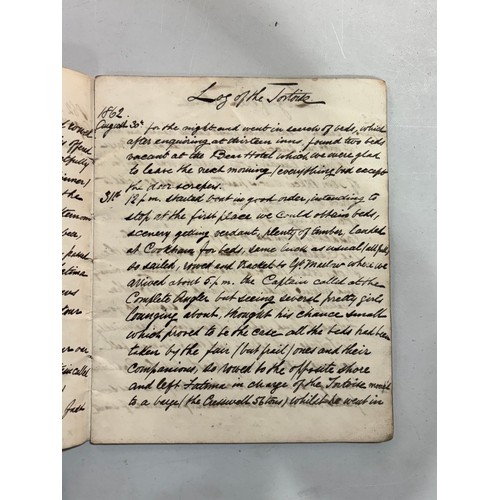 Log of the Tortoise
1862
August 30th for the night and went in search of beds, which
after enquiring at thirteen inns, found two beds
vacant at the Bear Hotel which we were glad
to leave the next morning (everything bad except
the door scrapes.
31st 12 p.m. started boat in good order, intending to
stop at the first place we could obtain beds,
scenery getting verdant, plenty of timber, landed
at Cookham for beds, same luck as usual (all full)
so sailed, rowed and tracked to Gt Marlow where we
arrived about 5 p.m. the Captain called at the
Complete Angler but seeing several pretty girls
lounging about, thought his chance small
which proved to be the case all the beds had been
taken by the fair (but frail) ones and their
companions, so rowed to the opposite shore
and left Fatima in charge of the Tortoise
to a barge (the Cresswell 56 tons) whilst we went in